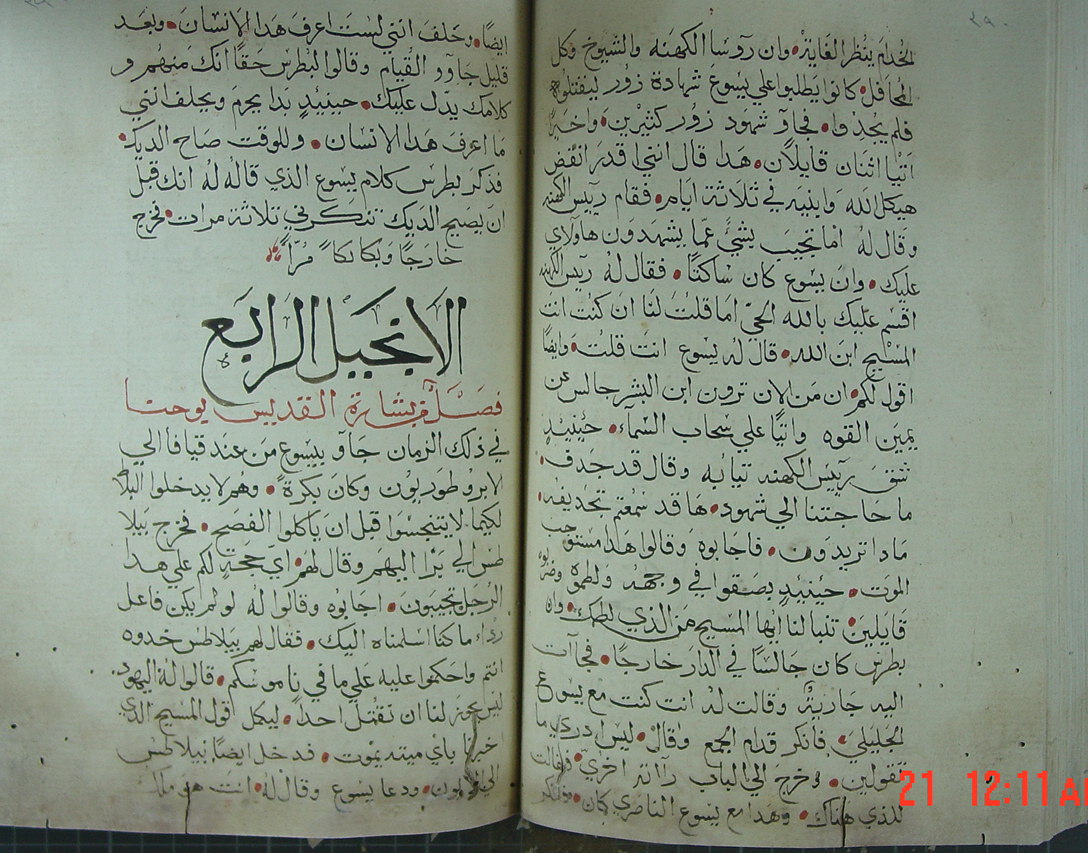 الخدام ينظر الغاية • وان روسا الكهنه والشيوخ وكل
المحافل • كانوا يطلبوا علي يسوع شهادة زور ليقتلوه
فلم يجدوا • فجاو شهود زور كثيرين • واخيرًا
اتيا اثنان قايلان • هدا قال انني اقدر انقض
هيكل الله وابنيه في تلاتة ايام • فقام رييس الكهنه
وقال له اما تجيب بشي عما يشهدون هاولاي
عليك • وان يسوع كان ساكتًا • فقال له رييس الكهنه
اقسم عليك بالله الحي اما قلت لنا ان كنت انت
المسيح ابن الله • قال له يسوع انت قلت • وايضًا
اقول لكم • ان من لان ترون ابن البشر جالس عن
يمين القوه واتيًا علي سحاب السماء • حينيدٍ
شق رييس الكهنه تيابه وقال قد جدف •
ما حاجتنا الي شهود • ها قد سمعتم تجديفه •
مادا تريدون • فاجابوه وقالوا هدا مستوجب
الموت • حينيدٍ بصقوا في وجهه ولطموه وضربوه
قايلين • تنبا لنا ايها المسيح من الذي لطمك • وان
بطرس كان جالسًا في الدار خارجًا • فجاات
اليه جارية وقالت له انت كنت مع يسوع
الجليلي • فانكر قدام الجمع وقال • ليس ادري ما
تقولين • وخرج الي الباب رااته اخري • فقالت
للذي هناك • وهدا مع يسوع الناصري كان • وانكر
ايضًا • وحلف انني لست اعرف هدا الانسان • وبعد
قليل جاوو القيام وقالوا لبطرس حقًا انك منهم و
كلامك يدل عليك • حينيدٍ بدا يحرم ويحلف انني
ما اعرف هدا الانسان • وللوقت صاح الديك •
فدكر بطرس كلام يسوع الذي قاله له انك قبل
ان يصيح الديك تنكرني تلاتة مرات • فخرج
خارجًا وبكا بكاً مرًا
الانجيل الرابع
فصل من بشارة القديس يوحنا
في ذلك الزمان جاو بيسوع من عند قيافا الي
لابروطوريون وكان بكرة • وهم لا يدخلوا البلا
لكيما لا يتنجسوا قبل ان ياكلوا الفصح • فخرج بيلا
طس الي برا اليهم وقال لهم • اي حجةٍ لكم علي هدا
الرجل تجيبون • اجابوه وقالوا له لو لم يكن فاعل
رداء ما كنا اسلمناه اليك • فقال لهم بيلاطس خدوه
انتم واحكموا عليه علي ما في ناموسكم • قالوا له اليهود
ليس يجوز لنا ان نقتل احدًا • ليكمل قول المسيح الذي
اخبرنا باي ميته يموت • فدخل ايضًا بيلاطس
الي • ودعا يسوع وقال له • انت هو ملك
21 12:11 A